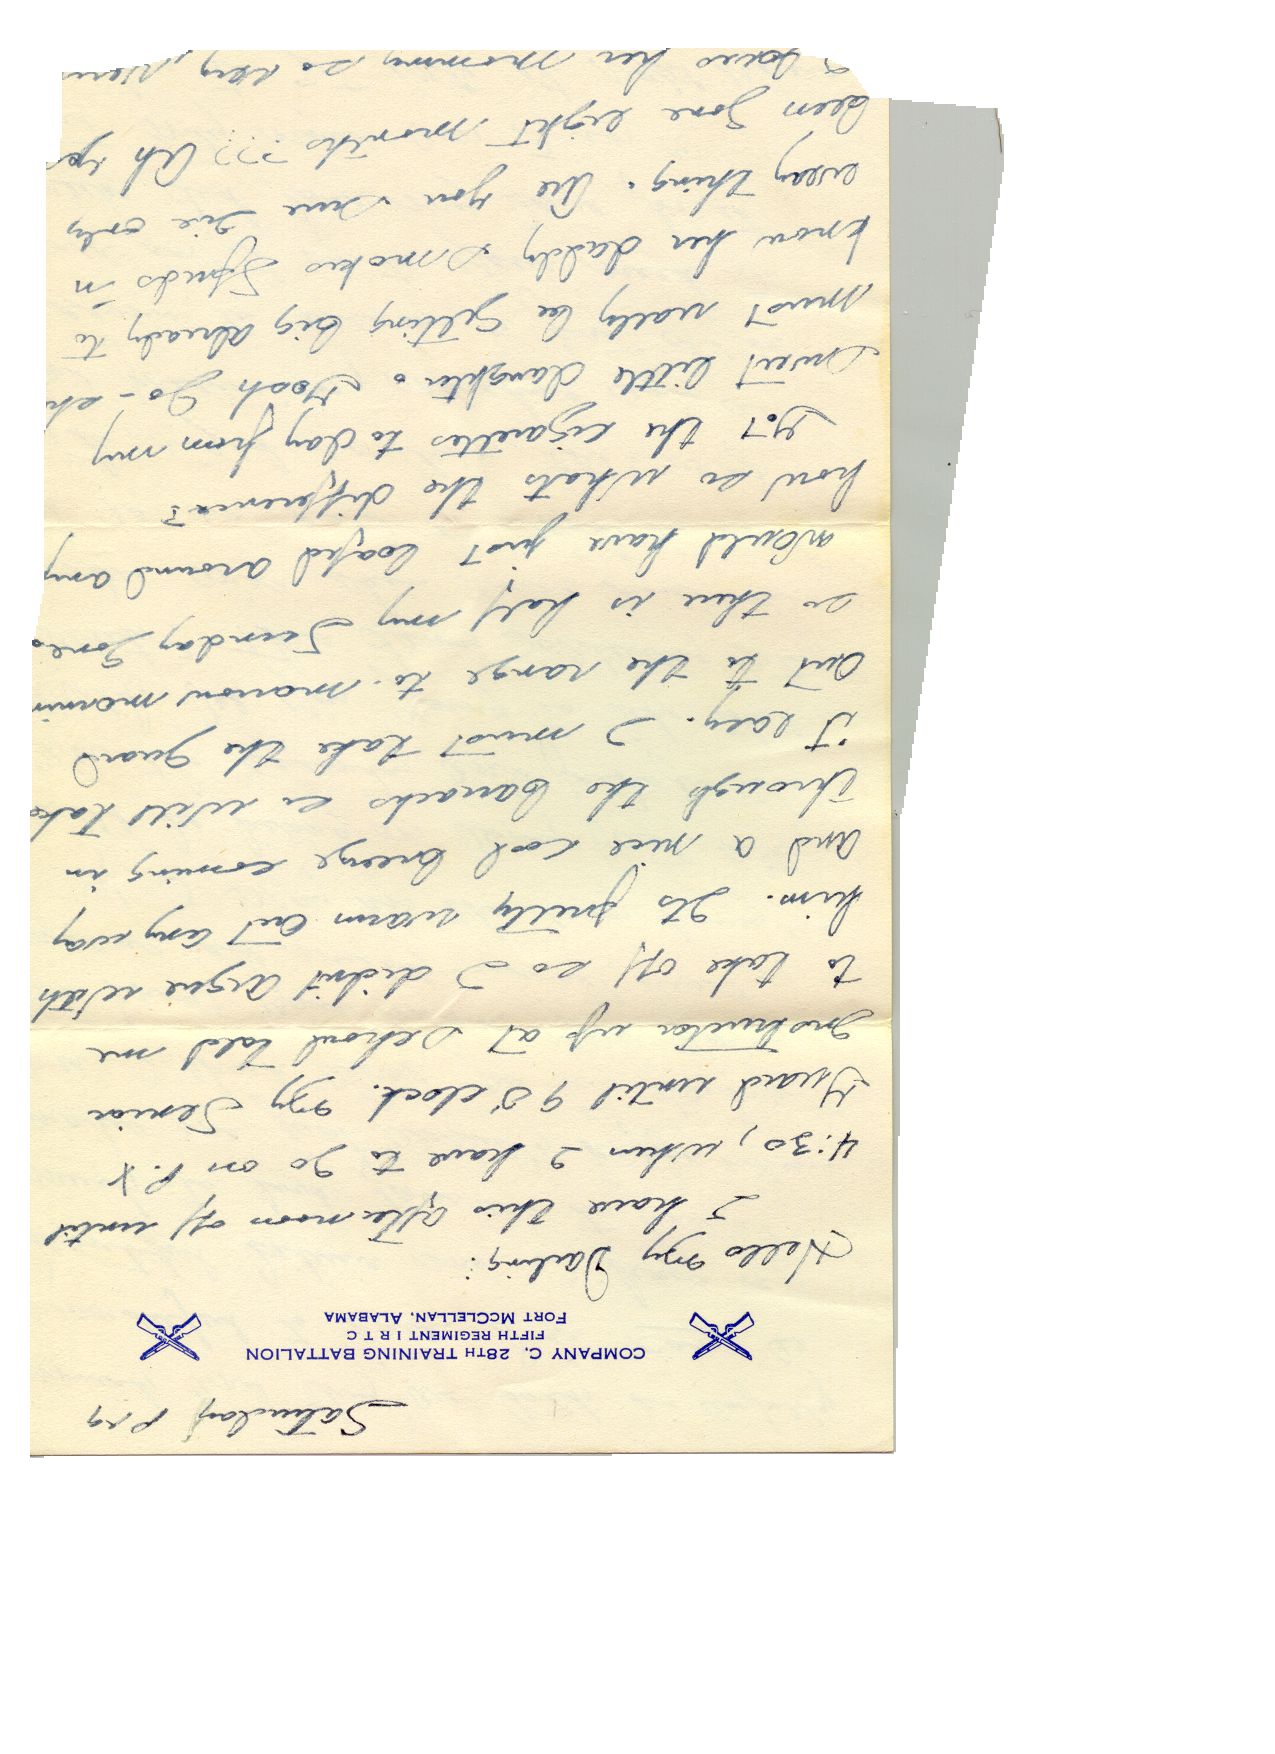 Saturday P M
COMPANY C, 28TH TRAINING BATTALION
FIFTH REGIMENT I R T C
FORT MCCLELLAN, ALABAMA
Hello My Darling:
I have this afternoon off until
4:30, when I have to go on P. X
Guard until 9 O'clock. My Senior
Instructor up at School told me
to take off so I didnt argue with
him. Its pretty warm but any way
and a nice cool breeze coming in
through the barracks so will take
it easy. I must take the guard
out to the range to-morrow
so there is half my Sunday Gone
would have just loafed around any
how so whats the difference?
Got the cigarettes to day from my
Sweet little daughter. Gosh Jo-
must really be getting big already to
know her daddy smokes Spuds in
every thing. Are you sure Ive only
been gone eight months??? Ah yes
loves her mommy so very